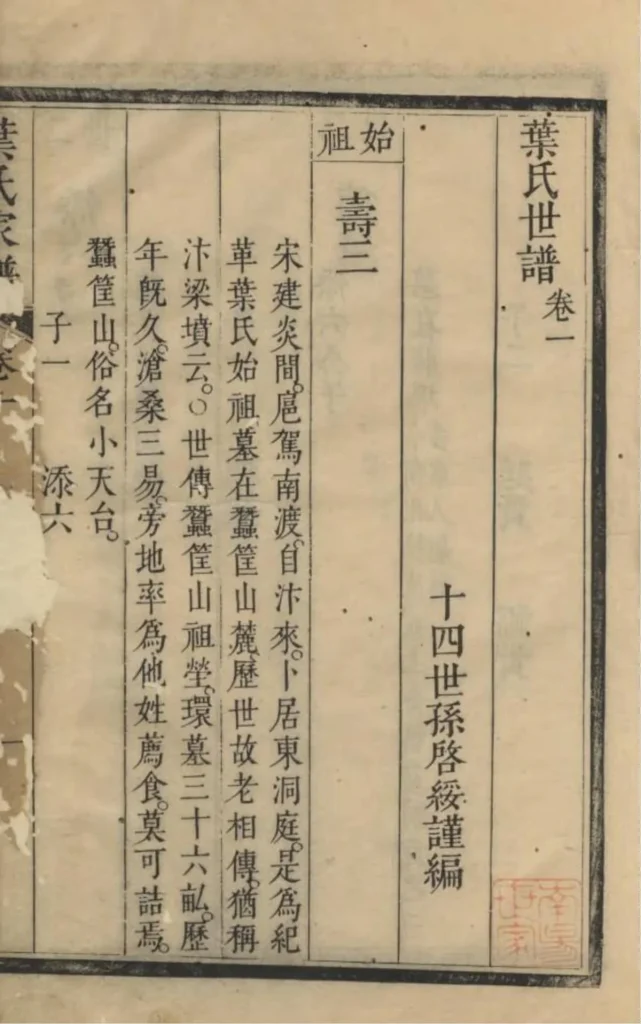 葉氏世譜 卷一
十四世孫啓綏謹編
始祖
壽三
宋建炎間。扈駕南渡。自汴來。卜居東洞庭。是爲紀
革葉氏始祖墓在蠶筐山麓。歷世故老相傳。猶稱
汴梁墳云。○世傳蠶筐山祖塋。環墓三十六畝。歷
年既久。滄桑三易。旁地率爲他姓薦食。莫可詰焉。
蠶筐山。俗名小天台。
子一 添六
葉氏家譜 卷一